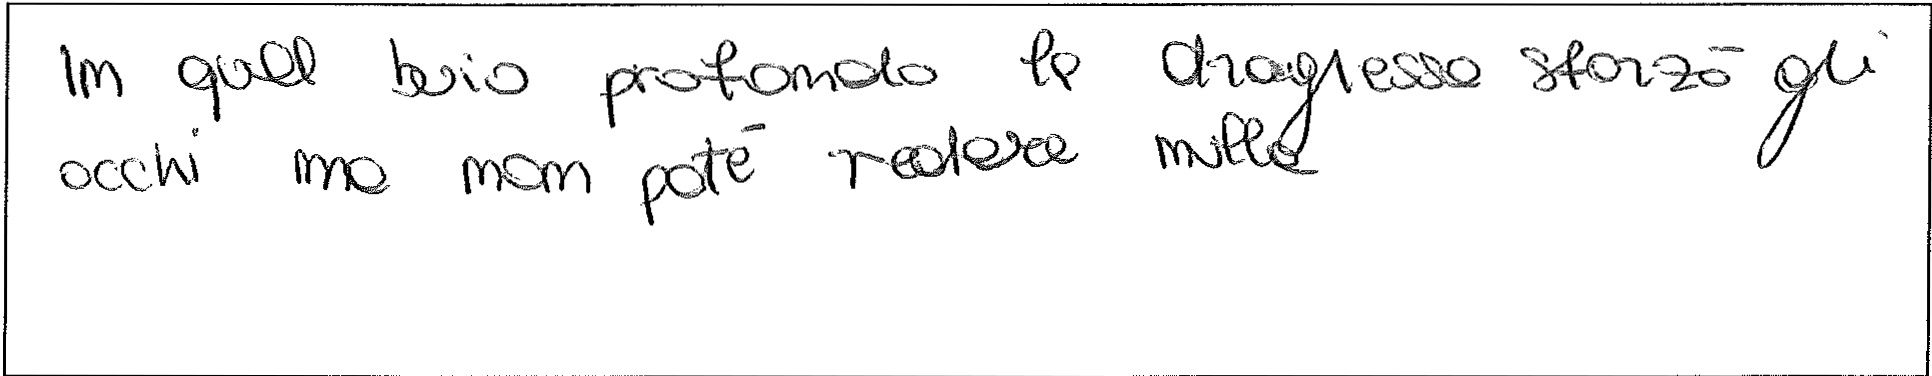 In quell buio profondo la dragressa sforzò gli
occhi ma non potē vedere nulla